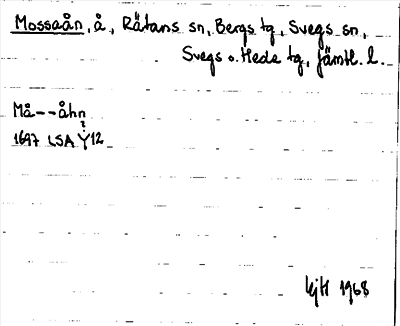 Mossaån, å, Rätans sn, Bergs tg, Svegs sn,
Svegs o. Hede tg, Jämtl. l.
Må--åhn
?
1697 LSA Y12
1968